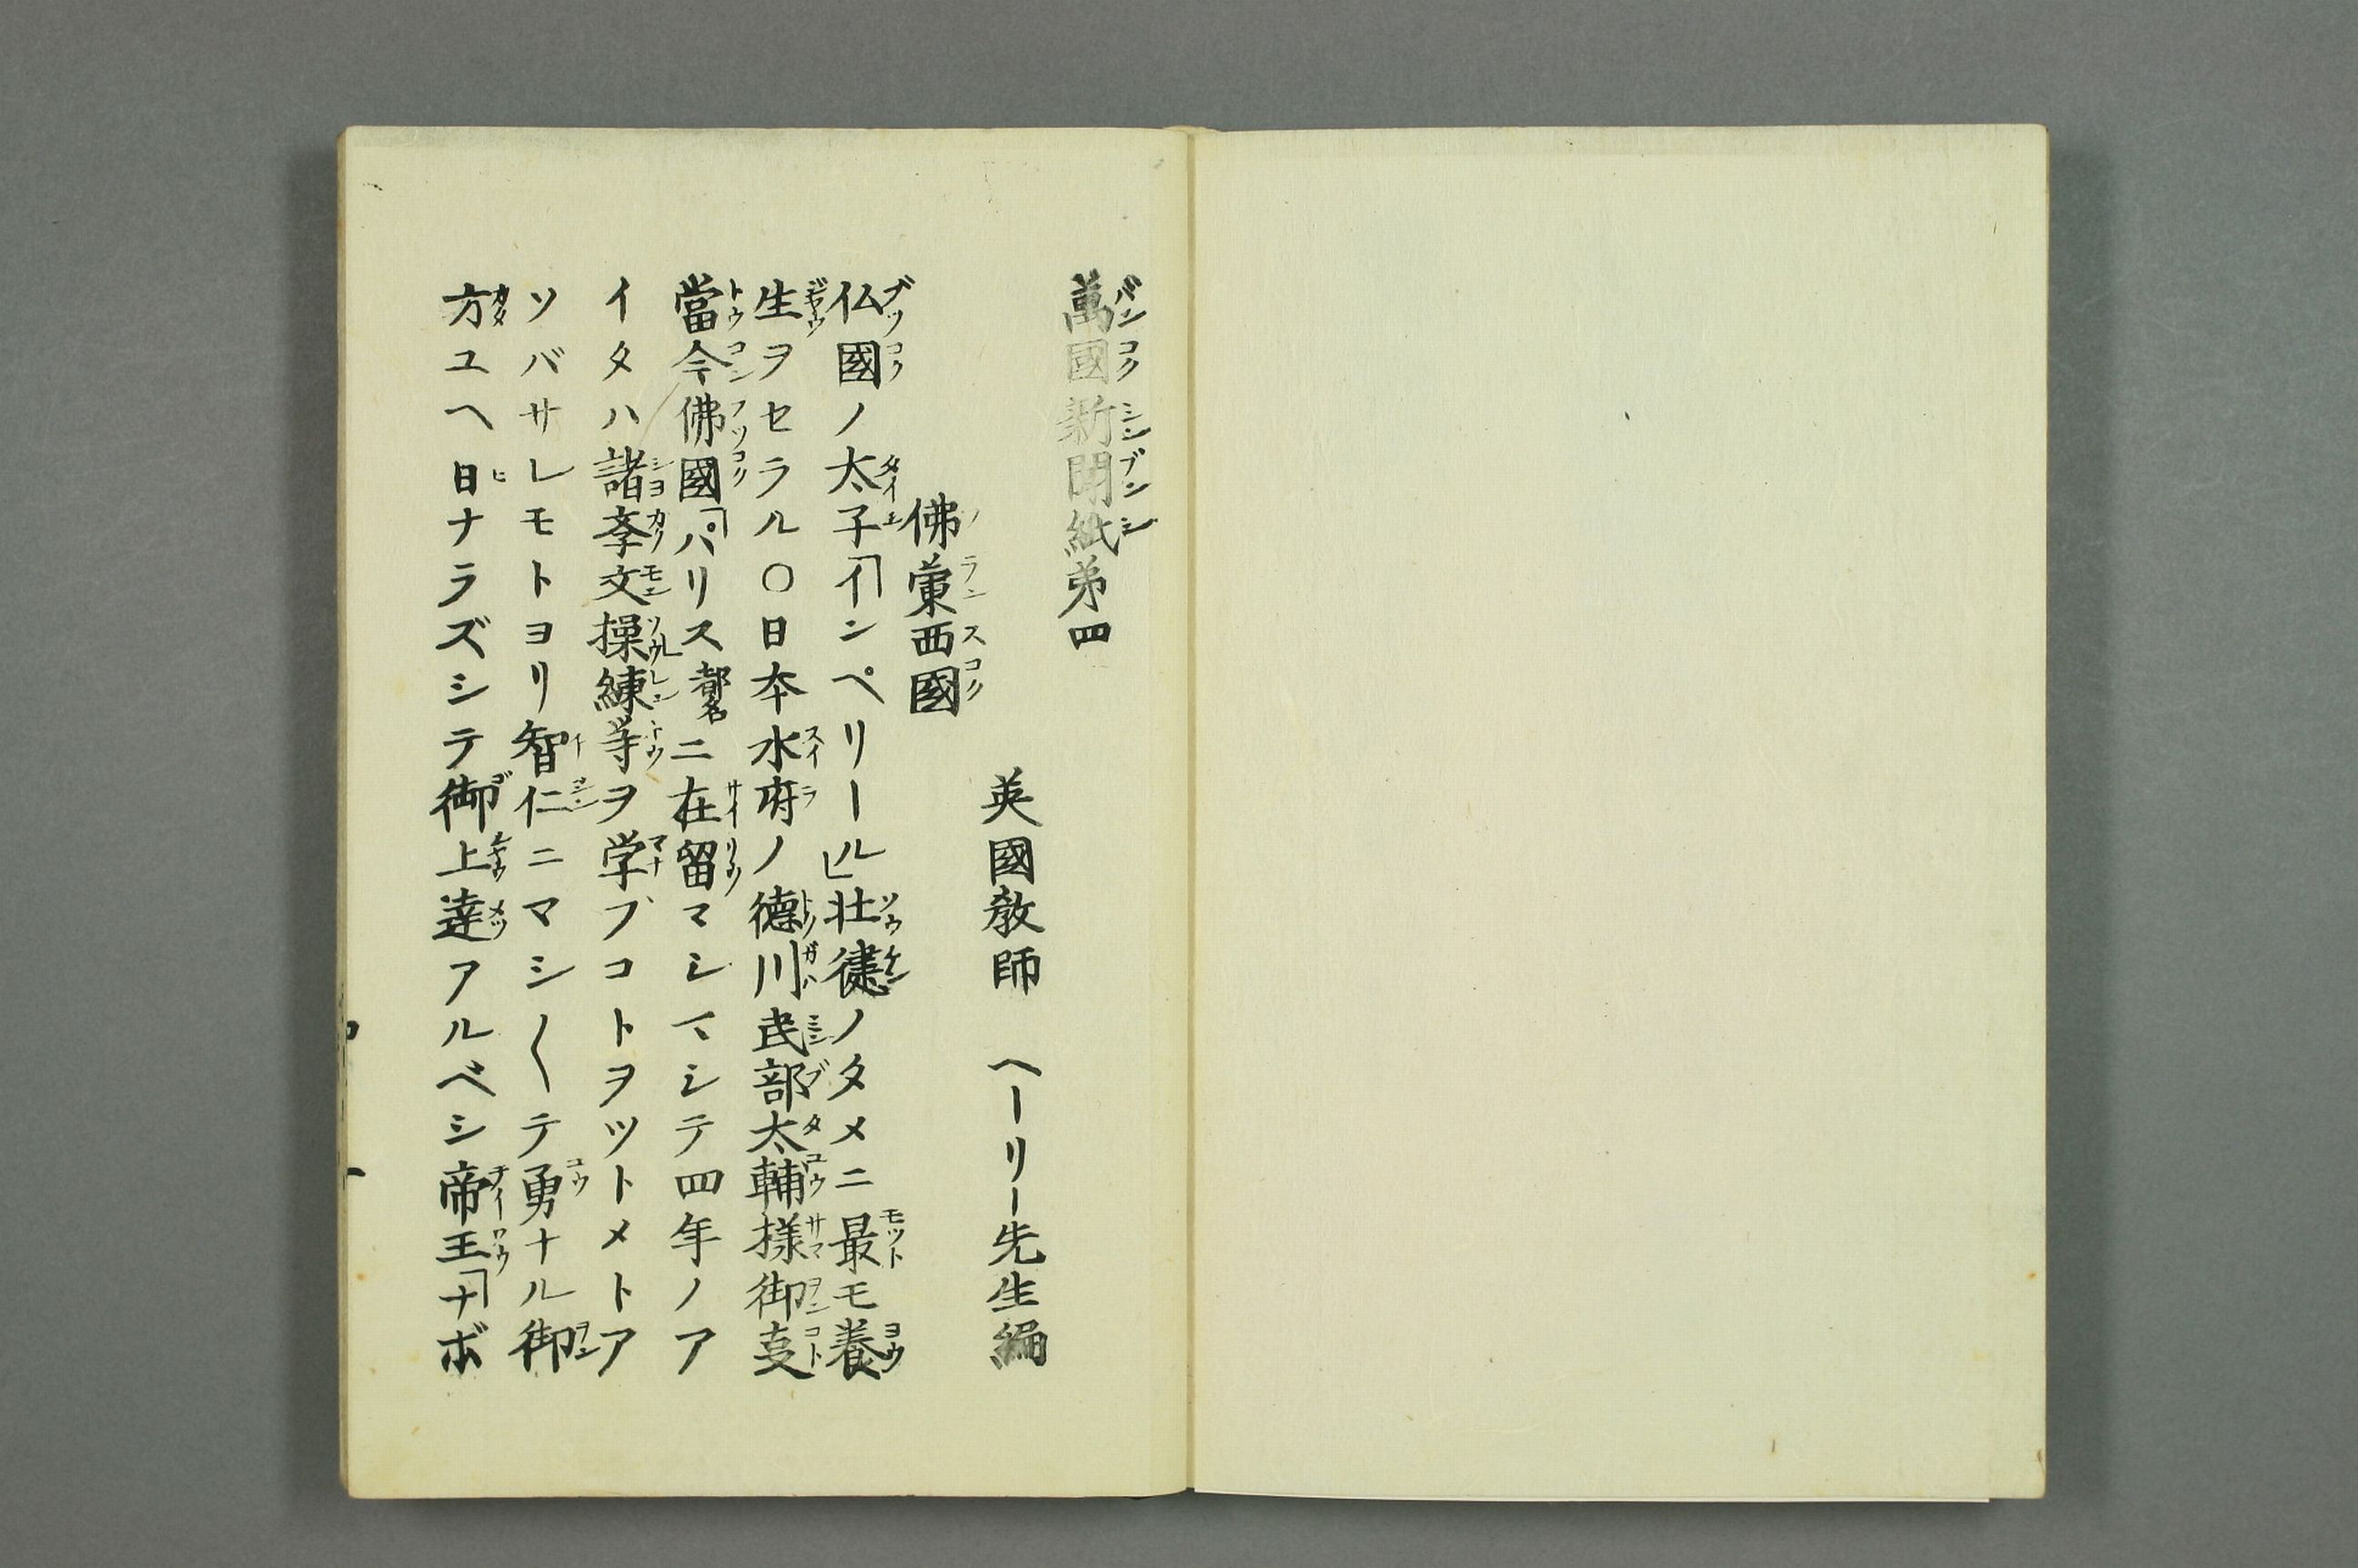 萬國新聞紙苐四
英國教師 ヘーリー先生編
佛蘭西國
仏國ノ太子「インペリール」壮健ノタメニ最モ養
生ヲセラル○日本水府ノ德川民部太輔様御叓
當今佛國「パリス都名ニ在留マシマシテ四年ノア
イタハ諸斈文操練等ヲ学ブコトヲツトメトア
ソバサレモトヨリ智仁ニマシ〱テ勇ナル御
方ユヘ日ナラズシテ御上達アルベシ帝王「ナボ